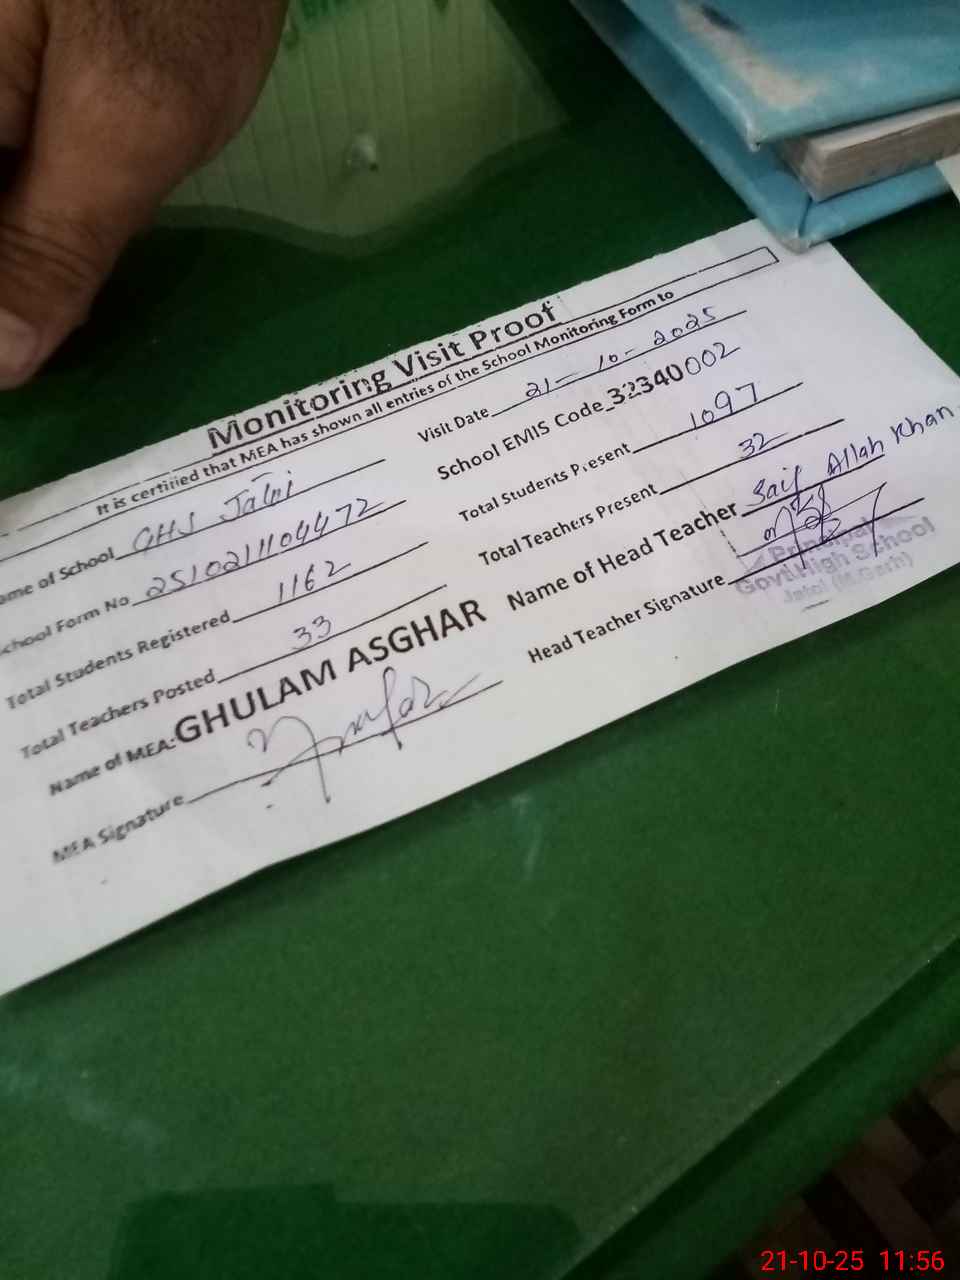 Monitoring Visit Proof
It is certified that MEA has shown all entries of the School Monitoring Form to
Visit Date 21-10-2025
ame of School GHS Jatoi
School EMIS Code 32340002
chool Form No 2510211104472
Total Students Present 1097
Total Students Registered 1162
Total Teachers Present 32
Total Teachers Posted 33
Name of Head Teacher Saif Allah Khan
Name of MEA: GHULAM ASGHAR
Head Teacher Signature
Principal
Govt. High School
Jatoi (M.Garh)
MEA Signature
21-10-25 11:56